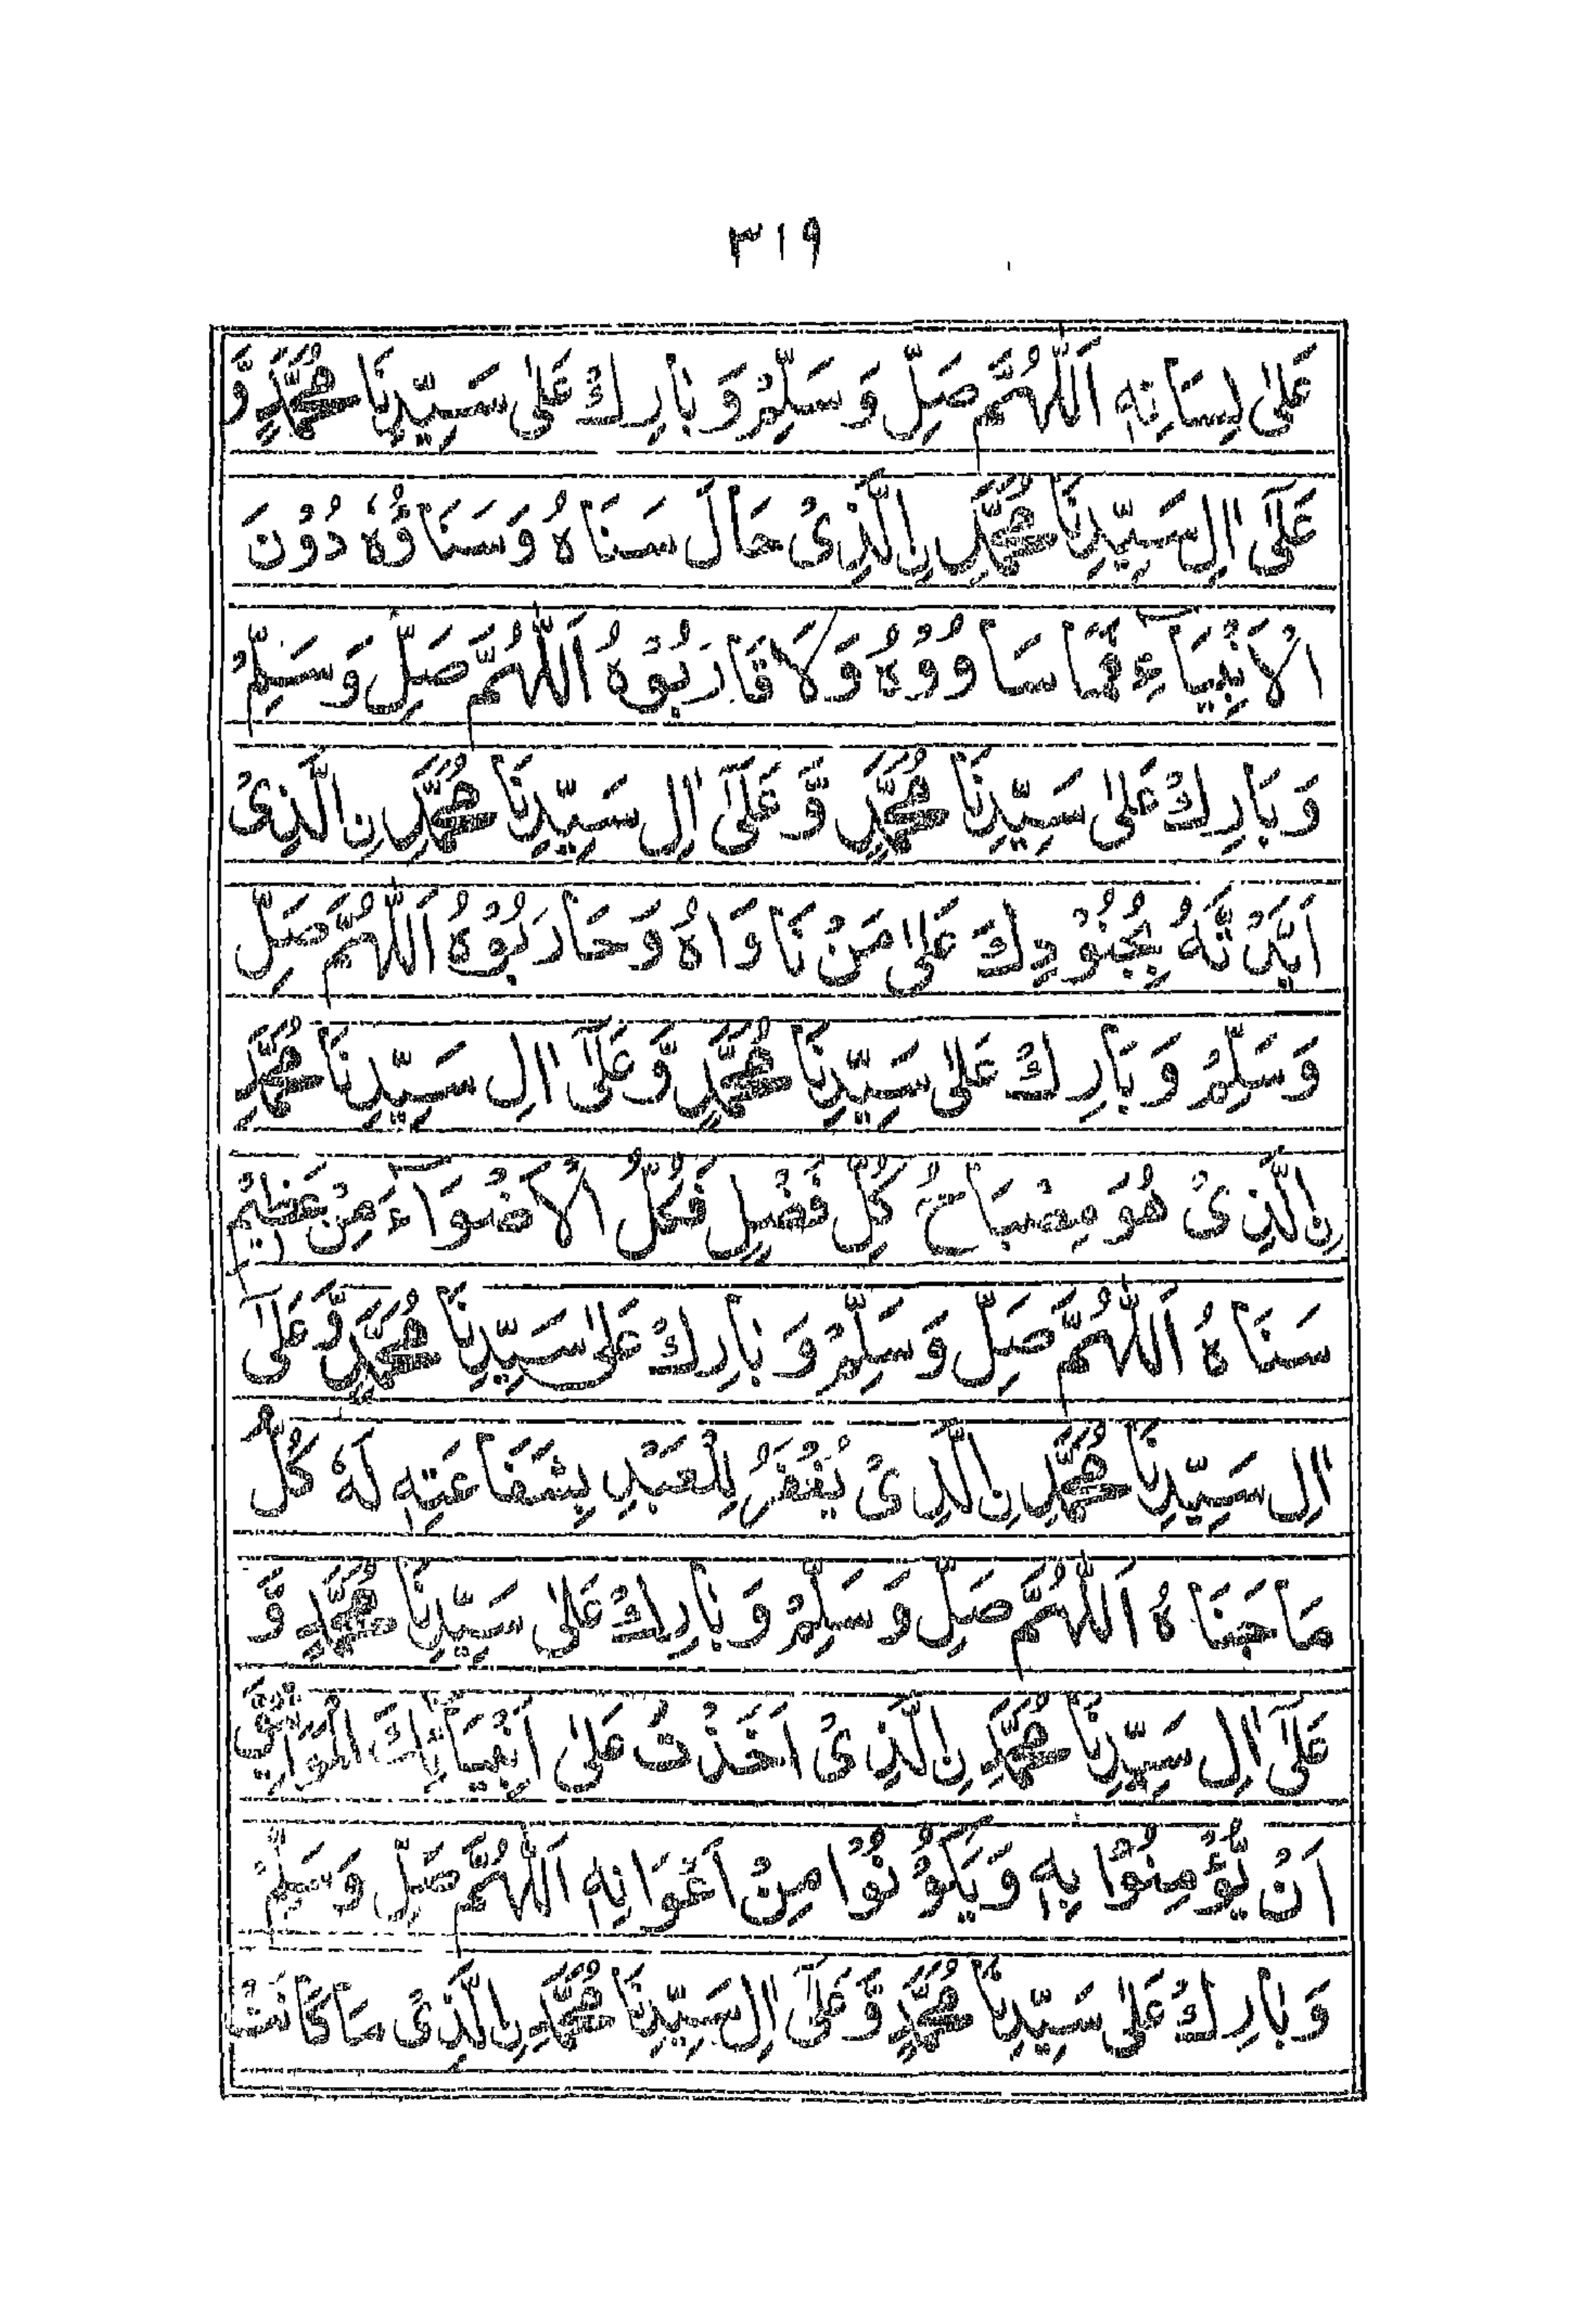 ٣١٩
عَلٰى لِسَانِهٖ اَللّٰهُمَّ صَلِّ وَسَلِّمْ وَبَارِكْ عَلٰى سَيِّدِنَا مُحَمَّدٍ وَّ
عَلٰٓى اٰلِ سَيِّدِنَا مُحَمَّدِ نِ الَّذِىْ حَالَ سَنَاهُ وَسَنَاؤُهٗ دُوْنَ
الْاَنْبِيَآءِ فَمَا سَاوُوْهُ وَلَا قَارَبُوْهُ اَللّٰهُمَّ صَلِّ وَسَلِّمْ
وَبَارِكْ عَلٰى سَيِّدِنَا مُحَمَّدٍ وَّ عَلٰٓى اٰلِ سَيِّدِنَا مُحَمَّدِ نِ الَّذِىْ
اَيَّدْتَّهُ بِجُنُوْدِكَ عَلٰى مَنْ نَاوَاهُ وَحَارَبُوْهُ اَللّٰهُمَّ صَلِّ
وَسَلِّمْ وَبَارِكْ عَلٰى سَيِّدِنَا مُحَمَّدٍ وَّعَلٰٓى اٰلِ سَيِّدِنَا مُحَمَّدِ
نِ الَّذِىْ هُوَ مِصْبَاحُ كُلِّ فَضْلٍ فَكُلُّ الْاَضْوَآءِ مِنْ عَظِيْمِ
سَنَاهُ اَللّٰهُمَّ صَلِّ وَسَلِّمْ وَبَارِكْ عَلٰى سَيِّدِنَا مُحَمَّدٍ وَّعَلٰٓى
اٰلِ سَيِّدِنَا مُحَمَّدِ نِ الَّذِىْ يُغْفَرُ لِلْعَبْدِ بِشَفَاعَتِهٖ لَهٗ كُلُّ
مَا جَنَاهُ اَللّٰهُمَّ صَلِّ وَسَلِّمْ وَبَارِكْ عَلٰى سَيِّدِنَا مُحَمَّدٍ وَّ
عَلٰٓى اٰلِ سَيِّدِنَا مُحَمَّدِ نِ الَّذِىْ اَخَذْتَ عَلٰى اَنْبِيَائِكَ الْمَوَاثِيْقَ
اَنْ يُّؤْمِنُوْا بِهٖ وَيَكُوْنُوْا مِنْ اَعْوَانِهٖ اَللّٰهُمَّ صَلِّ وَسَلِّمْ
وَبَارِكْ عَلٰى سَيِّدِنَا مُحَمَّدٍ وَّعَلٰٓى اٰلِ سَيِّدِنَا مُحَمَّدِ نِ الَّذِىْ مَا كَانَتْ